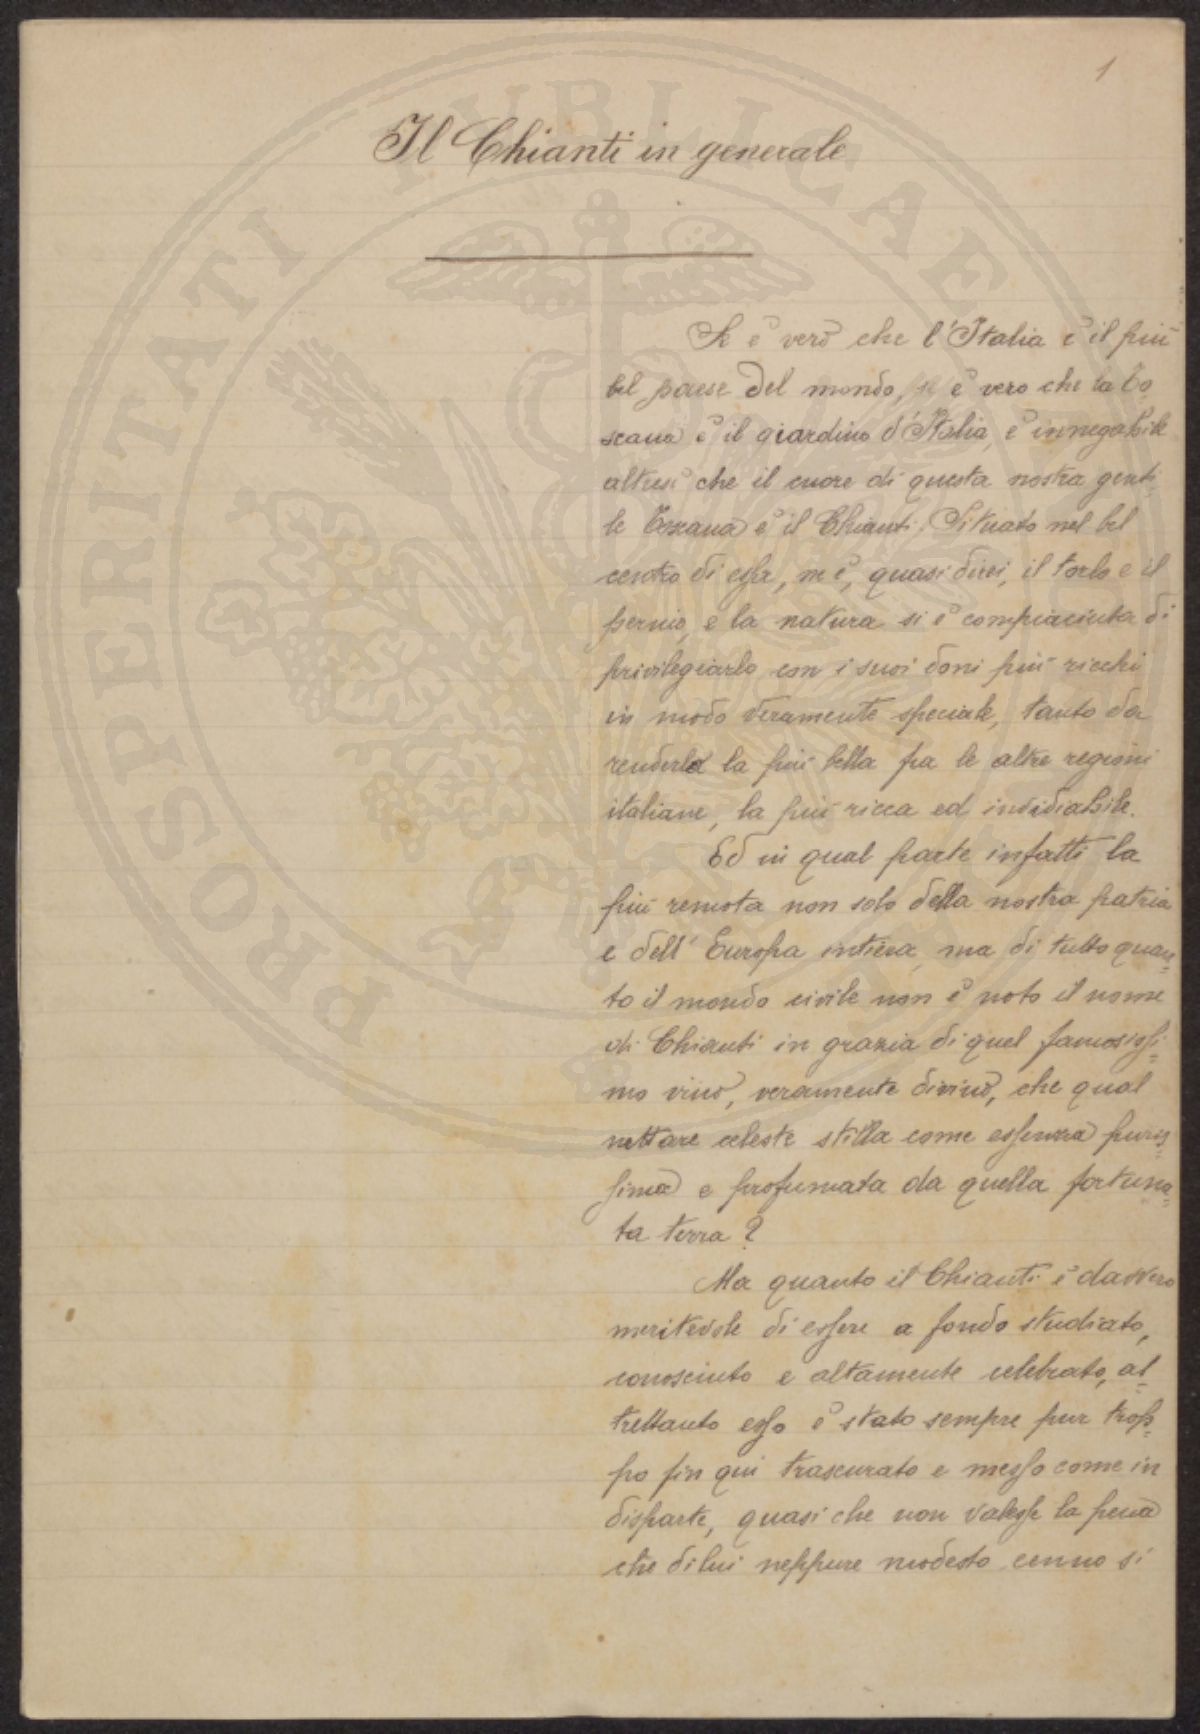 1
Il Chianti in generale
Se è vero che l'Italia è il più
bel paese del mondo, se è vero che la To-
scana è il giardino d'Italia, è innegabile
altresì che il cuore di questa nostra genti-
le Toscana è il Chianti. Situato nel bel
centro di essa, ne è, quasi direi, il torlo e il
pernio, e la natura si è compiaciuta di
privilegiarlo con i suoi doni più ricchi
in modo veramente speciale, tanto da
renderla la più bella fra le altre regioni
italiane, la più ricca ed invidiabile.
Ed in qual parte infatti la
più remota non solo della nostra patria
e dell'Europa intiera, ma di tutto quan-
to il mondo civile non è noto il nome
di Chianti in grazia di quel famosissi-
mo vino, veramente divino, che qual
nettare celeste stilla come essenza puris-
sima e profumata da quella fortuna-
ta terra?
Ma quanto il Chianti è davvero
meritevole di essere a fondo studiato,
conosciuto e altamente celebrato, al-
trettanto esso è stato sempre pur trop-
po fin qui trascurato e messo come in
disparte, quasi che non valesse la pena
che di lui neppure modesto cenno si
PROSPERITATI PUBLICAE